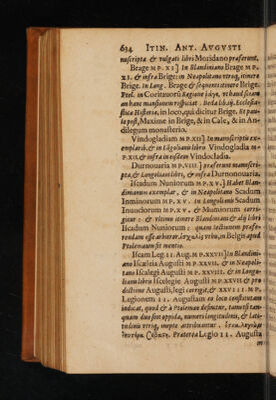 634 ITIN. ANT. AVGVSTI
nuscripta & vulgati libri Moridano præferunt.
Brage M P. XI] In Blandiniano Brage M P.
XI. & infra Brige: in Neapolitano vtroq, itinere
Brige. in Lang. Brage & sequenti itinere Brige.
Ptol. in
an hanc mansionem respiciat Beda lib. iij. Ecclesiastica
Historia, in loco, qui dicitur Brige. Et paulo
post, Maxime in Brige, & in Cale, & in Andilegum
monasterio.
Vindogladium M P. XII] In manuscriptis exemplarib.
& in Lãgoliano libro Vindogladia M
P. XIII. & infra in eisdem Vindocladia.
Durnouaria M P. VIII] præferunt manuscripta,
& Langoliani libri, & infra Durnonouaria.
Iscadum Nuniorum M P. XV.] Habet Blandinianum
exemplar, & in Neapolitano Scadum
Inminorum M P. XV. in Longoliensis Scadum
Inuodorum M P. XV. & Mumiorum corrigitur:
& vltimo itinere Blandiniensis & alij libri
Iscadum Nuniorum: quam lectionem præferendam
esse arbitror. vrbs, in Belgis apud
Ptolemæum sit mentio.
Iscam Leg. II. Aug. M P. XXVII] In Blandiniano
Iscaleia Augusti M P. XXVII. & in Neapolitano
Iscalegi Augusti M P. XXVIII. & in Longoliania
libris Iscelegie Augusti M P. XXVII & prodestinne
Augusti, legi corrigit, & XXVIII. M P.
Legionem II. Augustam eo loco constitutam
indicat, quod & à Ptolemæo desinitur, tametsi tamquam
duæ sint oppida, numeri longitudinis, & latitudinis
vtriq, inepte attribuantur.
Præterea Legio II. Augusta
in